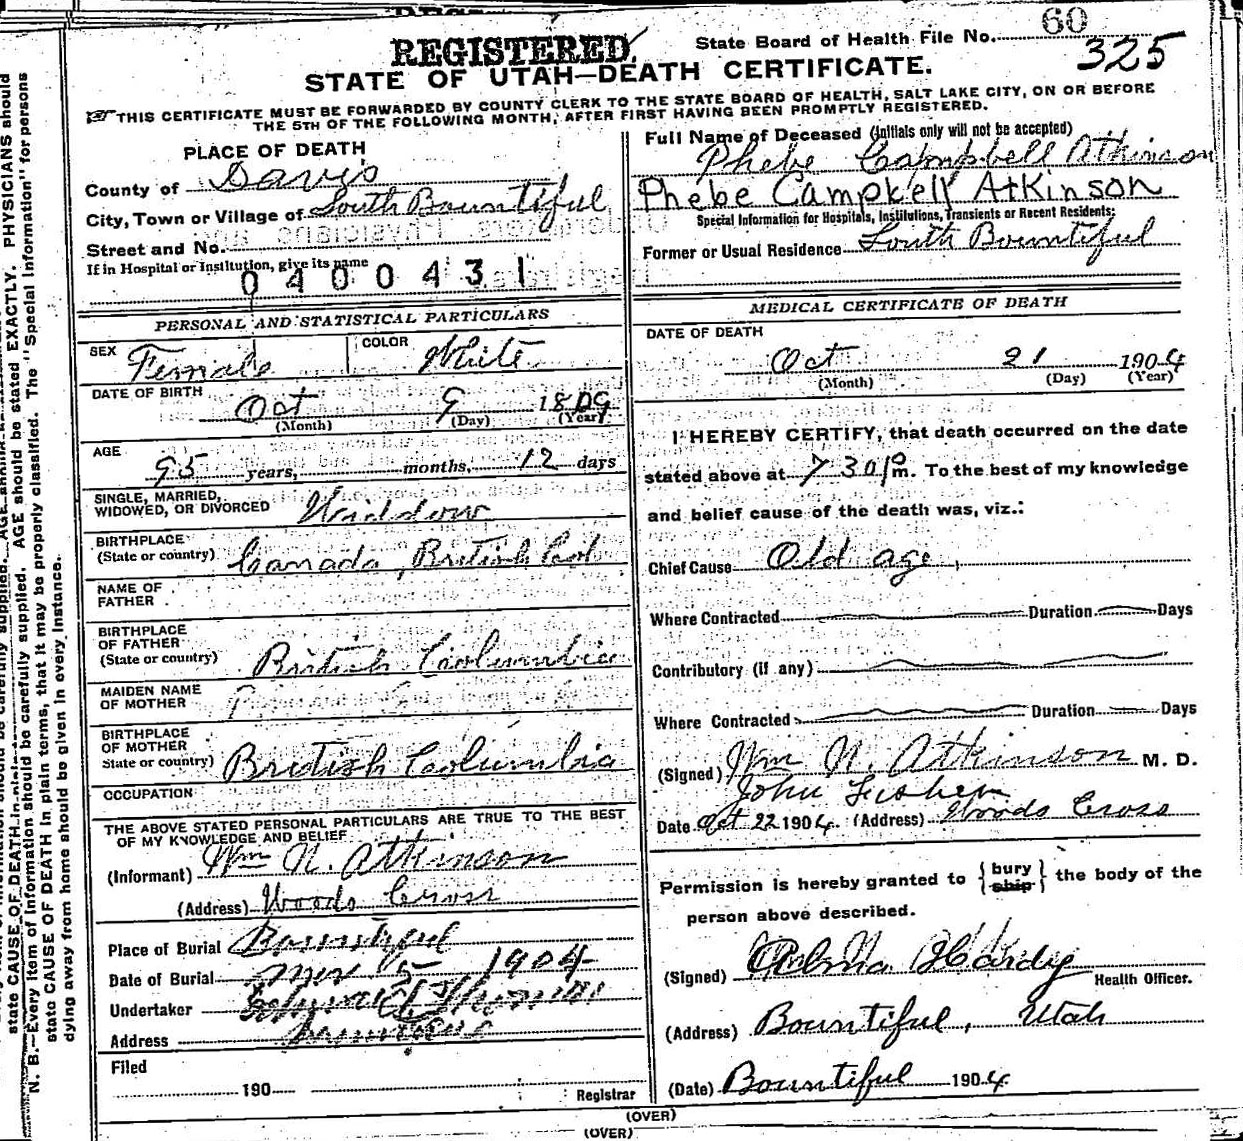 60
REGISTERED. State Board of Health File No.
325
STATE OF UTAH—DEATH CERTIFICATE.
THIS CERTIFICATE MUST BE FORWARDED BY COUNTY CLERK TO THE STATE BOARD OF HEALTH, SALT LAKE CITY, ON OR BEFORE
THE 5TH OF THE FOLLOWING MONTH, AFTER FIRST HAVING BEEN PROMPTLY REGISTERED.
PLACE OF DEATH
County of Davis
City, Town or Village of South Bountiful
Street and No.
If in Hospital or Institution, give its name
0400431
Full Name of Deceased (Initials only will not be accepted)
Phebe Campbell Atkinson
Phebe Campkell Atkinson
Special Information for Hospitals, Institutions, Transients or Recent Residents:
Former or Usual Residence South Bountiful
PERSONAL AND STATISTICAL PARTICULARS
SEX Female COLOR White
DATE OF BIRTH
Oct 9 1809
(Month) (Day) (Year)
AGE
95 years, months, 12 days
SINGLE, MARRIED,
WIDOWED, OR DIVORCED Widdow
BIRTHPLACE
(State or country) Canada, British Col
NAME OF
FATHER
BIRTHPLACE
OF FATHER
(State or country) British Coolumbia
MAIDEN NAME
OF MOTHER
BIRTHPLACE
OF MOTHER
State or country) British Coolumbia
OCCUPATION
THE ABOVE STATED PERSONAL PARTICULARS ARE TRUE TO THE BEST
OF MY KNOWLEDGE AND BELIEF
(Informant) Wm N. Atkinson
(Address) Woods Cross
Place of Burial Bountiful
Date of Burial 1904
Undertaker
Address Bountiful
Filed
190 Registrar
MEDICAL CERTIFICATE OF DEATH
DATE OF DEATH
Oct 21 1904
(Month) (Day) (Year)
I HEREBY CERTIFY, that death occurred on the date
stated above at 7 30 Pm. To the best of my knowledge
and belief cause of the death was, viz.:
Chief Cause Old age
Where Contracted Duration Days
Contributory (if any)
Where Contracted Duration Days
(Signed) Wm N. Atkinson M. D.
John Fisher
Date Oct 22 1904. (Address) Woods Cross
Permission is hereby granted to {bury ship} the body of the
person above described.
(Signed) Hardy
Health Officer.
(Address) Bountiful, Utah
(Date) Bountiful 1904
(OVER)
(OVER)
state CAUSE OF DEATH in
N. B.—Every item of information should be carefully supplied. AGE should be stated EXACTLY. PHYSICIANS should
state CAUSE OF DEATH in plain terms, that it may be properly classified. The "Special Information" for persons
dying away from home should be given in every instance.